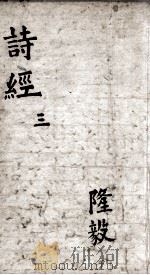 詩經
三
隆毅